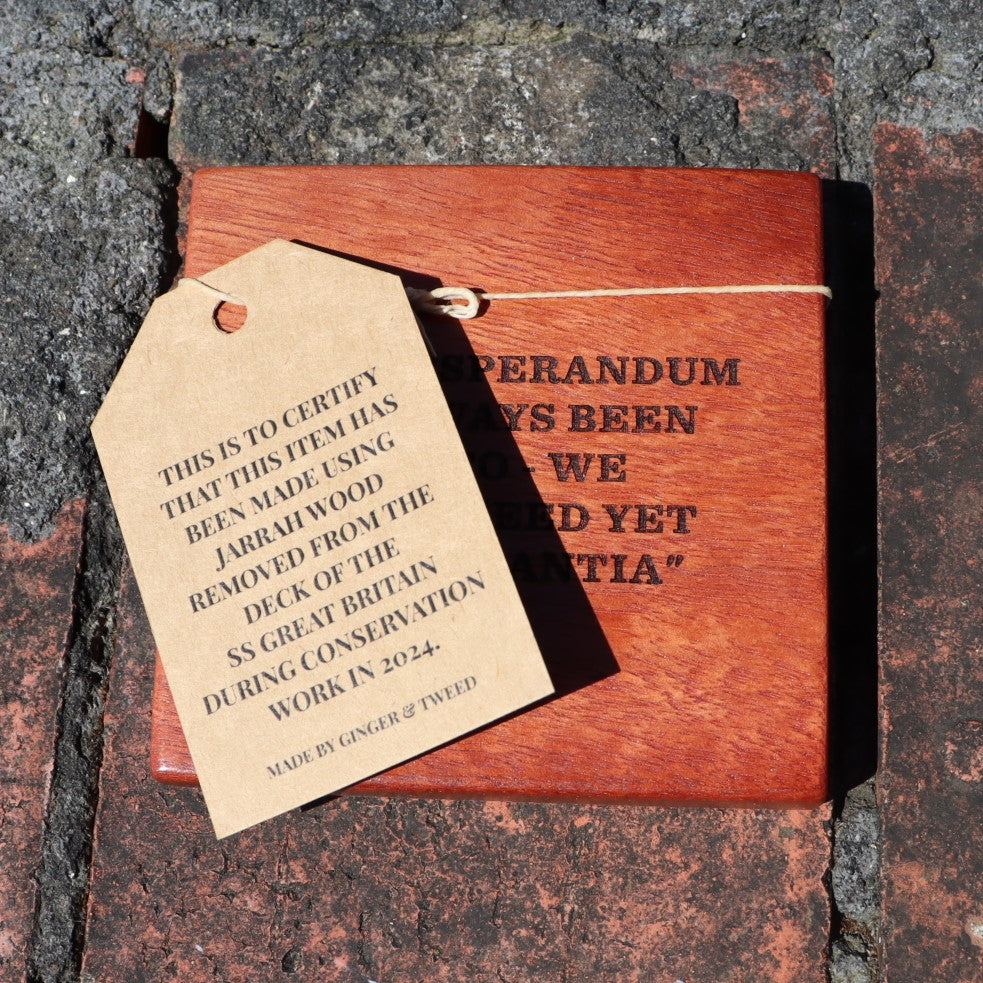 THIS IS TO CERTIFY
THAT THIS ITEM HAS
BEEN MADE USING
JARRAH WOOD
REMOVED FROM THE
DECK OF THE
SS GREAT BRITAIN
DURING CONSERVATION
WORK IN 2024.
MADE BY GINGER & TWEED
SPERANDUM
AYS BEEN
O - WE
EED YET
ANTIA”